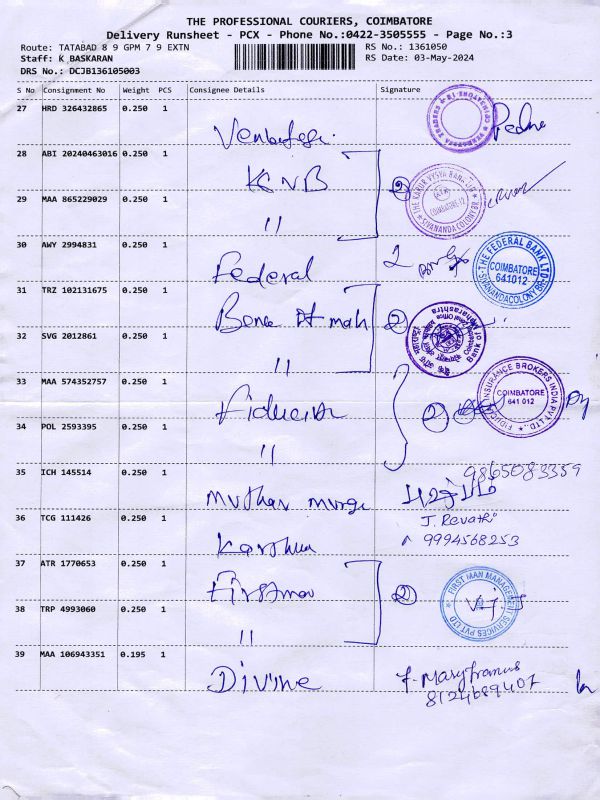 THE PROFESSIONAL COURIERS, COIMBATORE
Delivery Runsheet - PCX - Phone No.:0422-3505555 - Page No.:3
Route: TATABAD 8 9 GPM 7 9 EXTN
RS No.: 1361050
Staff: K BASKARAN
RS Date: 03-May-2024
DRS No.: DCJB136105003
S No Consignment No Weight PCS Consignee Details Signature
27 HRD 326432865 0.250 1
28 ABI 20240463016 0.250 1
KVB
THE KARUR VYSYA BANK LTD
COIMBATORE-12
SIVANANDA COLONY BR
29 MAA 865229029 0.250 1
"
30 AWY 2994831 0.250 1
Federal
2
THE FEDERAL BANK LTD
COIMBATORE
641012
SIVANANDACOLONY BR
31 TRZ 102131675 0.250 1
Bank of mah
2
32 SVG 2012861 0.250 1
"
33 MAA 574352757 0.250 1
2
INSURANCE BROKERS INDIA PVT LTD.,
COIMBATORE
641 012
34 POL 2593395 0.250 1
"
35 ICH 145514 0.250 1
9865083359
36 TCG 111426 0.250 1
J. Revathi
9994568253
37 ATR 1770653 0.250 1
Firstman
2
FIRST MAN MANAGEMENT SERVICES PVT LTD
38 TRP 4993060 0.250 1
"
39 MAA 106943351 0.195 1
Divine
8124689407